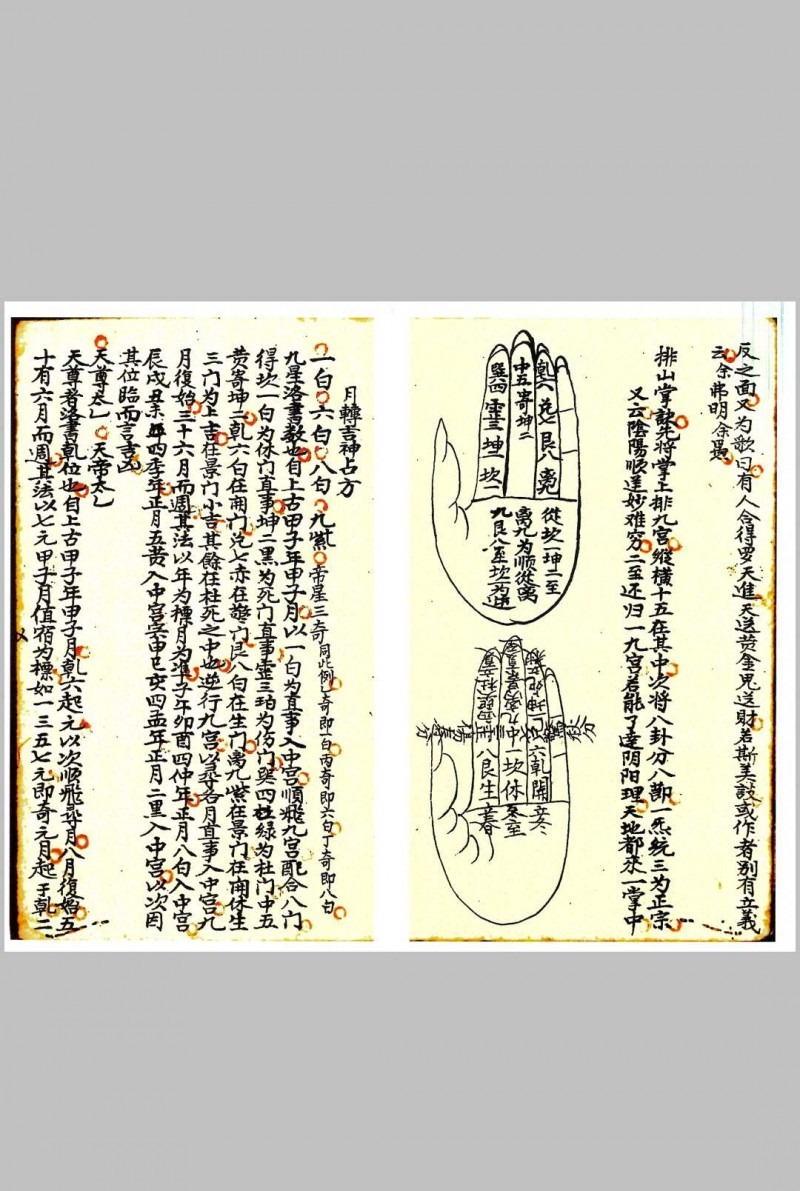 反之面又为歌曰有人會得罗天進天送黄金鬼送財若斯美談或作者别有立義
云余弗明余愚
排山掌訣先将掌上排九宫縱横十五在其中次将八卦分八節一炁統三为正宗
又云陰陽順逆妙难穷二至还归一九宫若能了達阴阳理天地都來一掌中
乾六兑七艮八離九
中五寄坤二
巽四震三坤二坎一
從坎一坤二至
离九为順從离
九艮八至坎为逆
六乾開
中一坎休
八艮生
立冬
冬至
立春
月轉吉神占方
一白六白八白九紫帝星三奇同此例乙奇即一白丙奇即六白丁奇即八白
九星洛書数也自上古甲子年甲子月以一白为直事入中宫順飛九宫配合八门
得坎一白为休门直事坤二黑为死门直事震三珀为伤门巽四綠为杜门中五
黄寄坤二乾六白在開门兑七赤在驚门艮八白在生门离九紫在景门在開休生
三门为上吉在景门小吉其餘在杜死之中也逆行九宫以尋各月直事入中宫九
月復始三十六月而週其法以年为標月为準子午卯酉四仲年正月八白入中宫
辰戌丑未四季年正月五黄入中宫寅申巳亥四孟年正月二黑入中宫以次因
其位臨而言吉凶
天尊太乙 天帝太乙
天尊者洛書乾位也自上古甲子年甲子月乾六起元以次順飛尋月八月復始五
十有六月而週其法以七元甲子月值宿为標如一三五七元即奇元月起于乾二